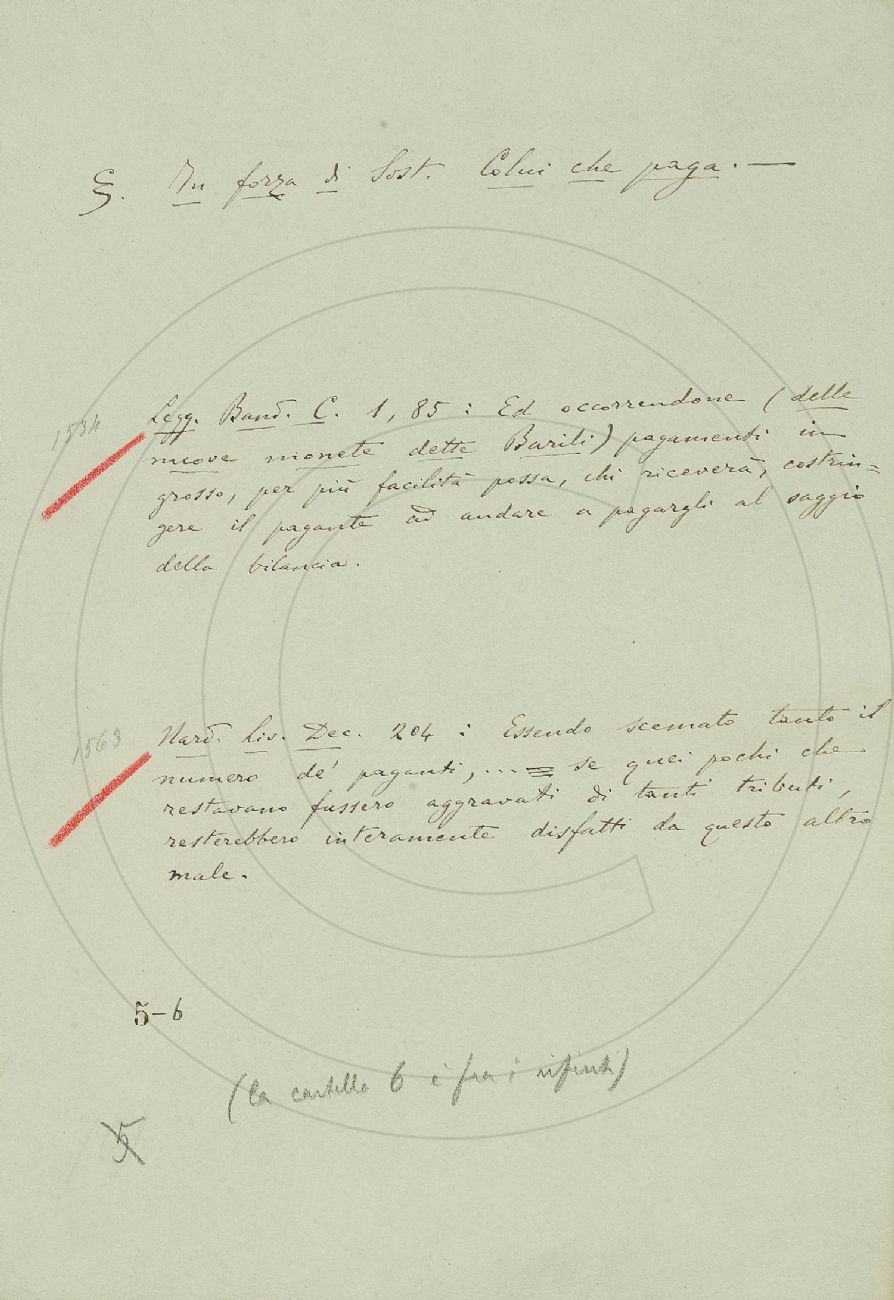 §. In forza di Sost. Colui che paga. —
1534
Legg. Band. C. 1, 85 : Ed occorrendone (delle
nuove monete dette Barili) pagamenti in
grosso, per più facilità possa, chi riceverà, costrin=
gere il pagante ad andare a pagargli al saggio
della bilancia.
1563
Nard. Liv. Dec. 204 : Essendo scemato tanto il
numero de' paganti,... = se quei pochi che
restavano fussero aggravati di tanti tributi,
resterebbero interamente disfatti da questo altro
male.
5-6
(la cartella 6 è fra i rifiuti)
5